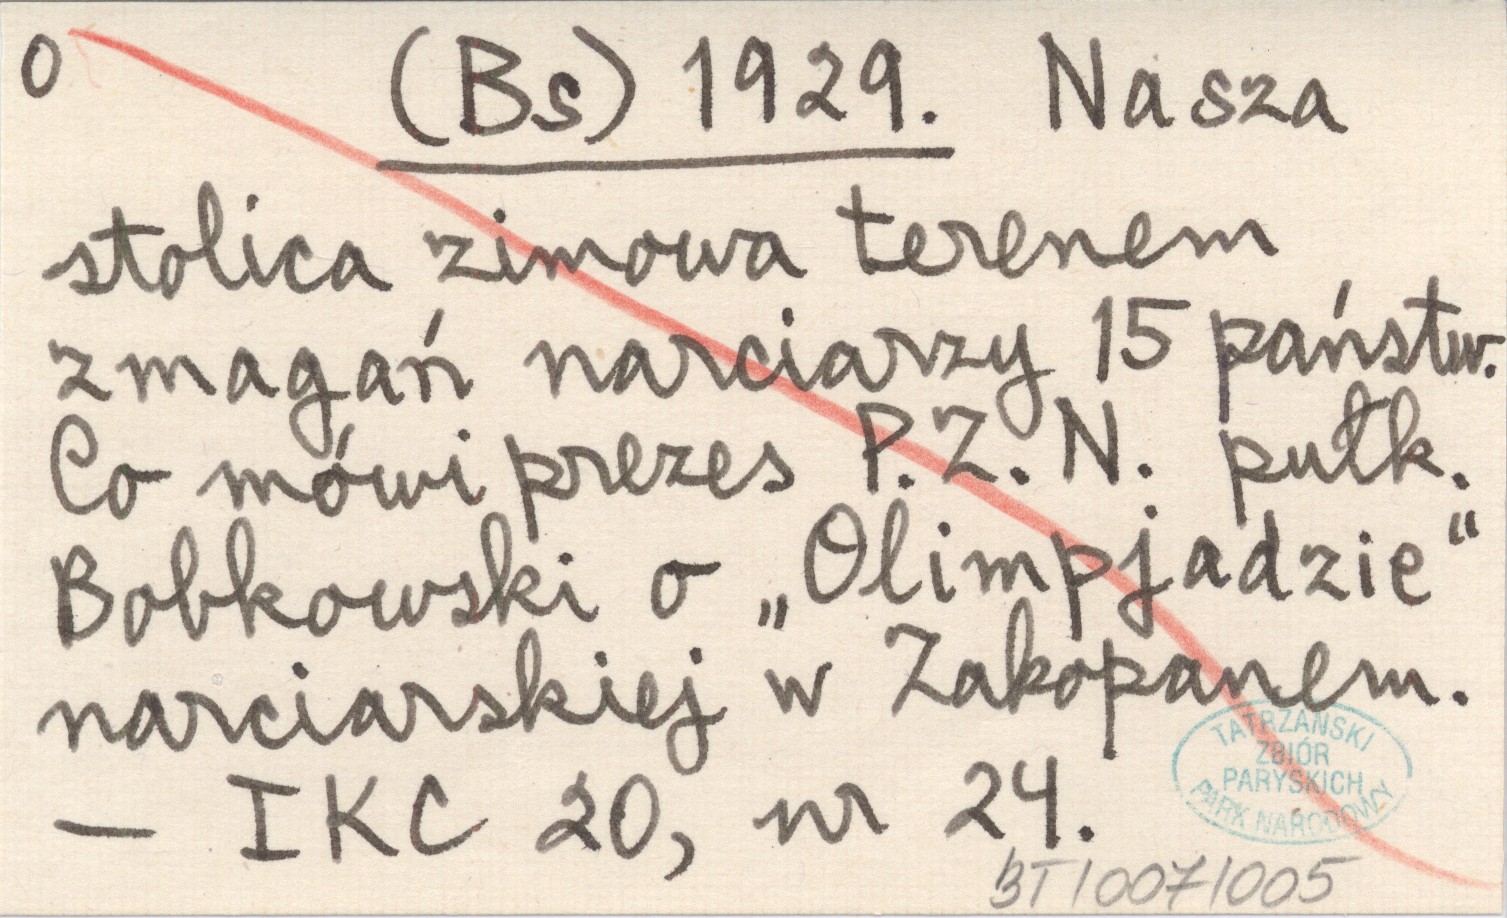 0 (Bs) 1929. Nasza
stolica zimowa terenem
zmagań narciarzy 15 państw.
Co mówi prezes P.Z.N. pułk.
Bobkowski o „Olimpjadzie“
narciarskiej w Zakopanem.
— IKC 20, nr 24.
TATRZAŃSKI
ZBIÓR
PARYSKICH
PARK NARODOWY
BT/007/005